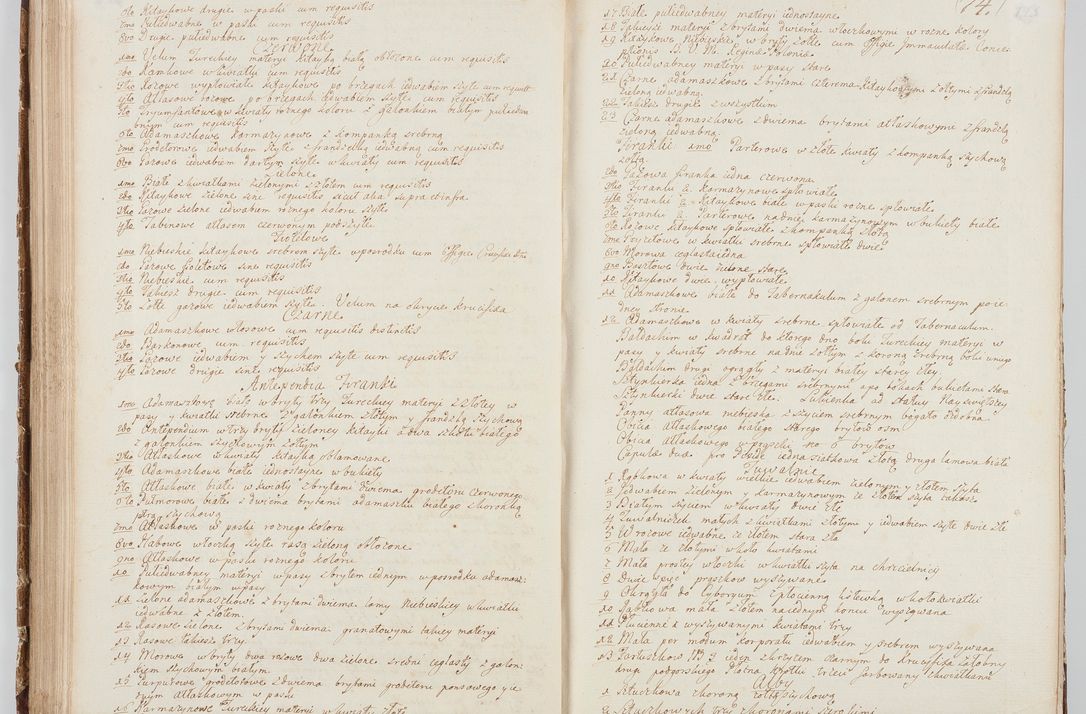 6to Kitaykowe drugie w paski cum requisitis
7mo Pułiedwabne w paski cum requisitis
8vo Drugie pułiedwabne cum requisitis
Czerwone
1mo Velum Tureckiey materyi kitayką białą obłozone cum requisitis
2do Ramkowe w kwiatki cum requisitis
3tio Rozowe wypłowiałe kitaykowe po brzegach iedwabiem szyte cum requisit
4to Atłasowe rozowe po brzegach iedwabiem szyte cum requisitis
5to Tryumfantowe w kwiaty roznego koloru z galonkiem małym
cum requisitis
6to Adamaszkowe karmazynowe z kompanką srebrną
7mo Grodetorowe iedwabiem szyte z frandzelką iedwabną cum requisitis
8vo Gazowe iedwabiem dartym szyte w kwiaty cum requisitis
Zielone
1mo Białe z kwiatkami zielonymi złotem cum requisitis
2do Kitaykowe zielone sine requisitis sicut alia supra et infra
3tio Gazowe zielone iedwabiem roznego koloru szyte
4to Tabinowe atłasem czerwonym podszyte
Fioletowe
1mo Niebieskie kitaykowe srebrem szyte w posrodku cum Effigie Crucifixi Dni
2do Gazowe fioletowe sine requisitis
3tio Niebieskie cum requisitis
4to Takież drugie cum requisitis
5to Zółte gazowe iedwabiem szyte. Velum na okrycie krucifixa
Czarne
1mo Adamaszkowe włosowe cum requisitis distinctis
2do Barkonowe cum requisitis
3tio Gazowe iedwabiem y szychem szyte cum requisitis
4to Gazowe drugie sine requisitis
Antepedia Firanki
1mo Adamaszkowe białe w bryty trzy Tureckiey materyi złotey w
pasy y kwiatki srebrne z galonkiem złotym frandzlą szychową
2do Antipendium w trzy bryty zieloney kitayki a dwa białego
z galonkiem szychowym złotym
3tio Atłaskowe w kwiaty kitayką obłamowane
4to Adamaszkowe białe iednostayne w bukiety
5to Atłaskowe białe w kwiaty z brytami dwiema grodetoru czerwonego
6to Białe z dwiema brytami adamaszku białego z koronką
szychową
7mo Atłaskowe w paski roznego koloru
8vo Rabowe włoczką szyte rasą zieloną obłozone
9no Atłaskowe w paski roznego koloru
10 Pułiedwabney materyi w pasy z brytem iednym w posrodku adamasz
kowym białym w pasy
11 Zielone adamaszkowe z brytami dwiema lamy Niebieskiey w kwiatki
iedwabne z złotem
12 Rasowe zielone z brytami dwiema granatowymi takiey materyi
13 Rasowe takież trzy
14 Morowe w bryty dwa rasowe dwa zielone sredni ceglasty z galon
kiem szychowym białym
15 Purpurowe grodetorowe z dwiema brytami grodetoru ponsowego y ie
dnym atłaskowym w paski
16 Karmazynowe Tureckiey materyi w kwiaty złote
74.
17 Białe pułiedwabney materyi iednostayne
18 Takieyże materyi z brytami dwiema włoczkowymi w rozne kolory
19 Kitaykowe Niebieskie w bryty zółte cum Effigie Immaculatæ Conce
ptionis B. V. M.
20 Pułiedwabney materyi w pasy stare
21 Czarne adamaszkowe z brytami czterema kitaykowymi żółtymi z frandzlą
zieloną iedwabną
22 Takież drugie z wszystkim
23 Czarne adamaszkowe z dwiema brytami atłaskowymi z frandzlą
zieloną iedwabną
Firanki 1mo Parterowe w złote kwiaty z kompanką szychową
złotą
2do Gazowa firanka iedna czerwona
3tio Firanki 2 karmazynowe spłowiałe
4to Firanki 2 Kitaykowe białe w paski rozne spłowiałe
5to Firanki 2 Parterowe na dnie karmazynowym w bukiety białe
6to Rozowe kitaykowe spłowiałe z kompanką złotą
7mo Fryzetowe w kwiatki srebrne spłowiałe dwie
8vo Morowa ceglasta iedna
9no Basztowe dwie zielone stare
10 Kitaykowe dwie wypłowiałe
11 Adamaszkowe białe do Tabernakulum z galonem srebrnym po ie
dney stronie
12 Adamaszkowe w kwiaty srebrne spłowiałe od Tabernaculum.
Baldachim w kwadrat do ktorego dno bolu Tureckiey materyi w
pasy y kwiaty srebrne na dnie żółtym z koroną srebrną bolu unego
Baldachim drugi ogrągły z materyi białey starey złey.
iedna z brzegami srebrnymi a po bokach bukietami
dwie stare złe. Sukienka ad statuę Nayświętszey
Panny atłasowa niebieska z szyciem srebrnym bogato ozdobna
Obicia atłaskowego białego starego brytow osm
Obicia atłaskowego w prążki no 6 brytow
Capula dua pro Pixide iedna siatkowa złota druga lamowa biała
Tuwalnie
1 Rąbkowa w kwiaty wielkie iedwabiem zielonym y złotem szyta
2 Iedwabiem zielonym y karmazynowym ze złotem szyta takaż
3 Białym szyciem w kwiaty dwie złe
4 Tuwalniczek małych z kwiatkami złotymi y iedwabiem szyte dwie złe
5 W rozowe iedwabne ze złotem stara zła
6 Mała ze złotymi w koło kwiatami
7 Mała prostey włoczki w kwiatki szyta na chrzcielnicy
8 Dwie prążkow wyszywane
9 Okrągła do Cyboryum z płocienną listewką w koło kwiatki
10 Rąbkowa mała złotem na iednym koncu wyszywana
11 Płucienne z wyszywanymi kwiatami trzy
12 Mała per modum korporału iedwabiem y srebrem wyszywana
13 Fartuszkow NB 3 ieden z krzyżem czarnym do Krucifixa żałobny
drugi podgorskiego Płotna żołtki trzeci farbowany z kwiatkami
Alby
1 Sztuczkowa z koroną złotą szychową
2 Sztuczkowych trzy z koronami szerokimi